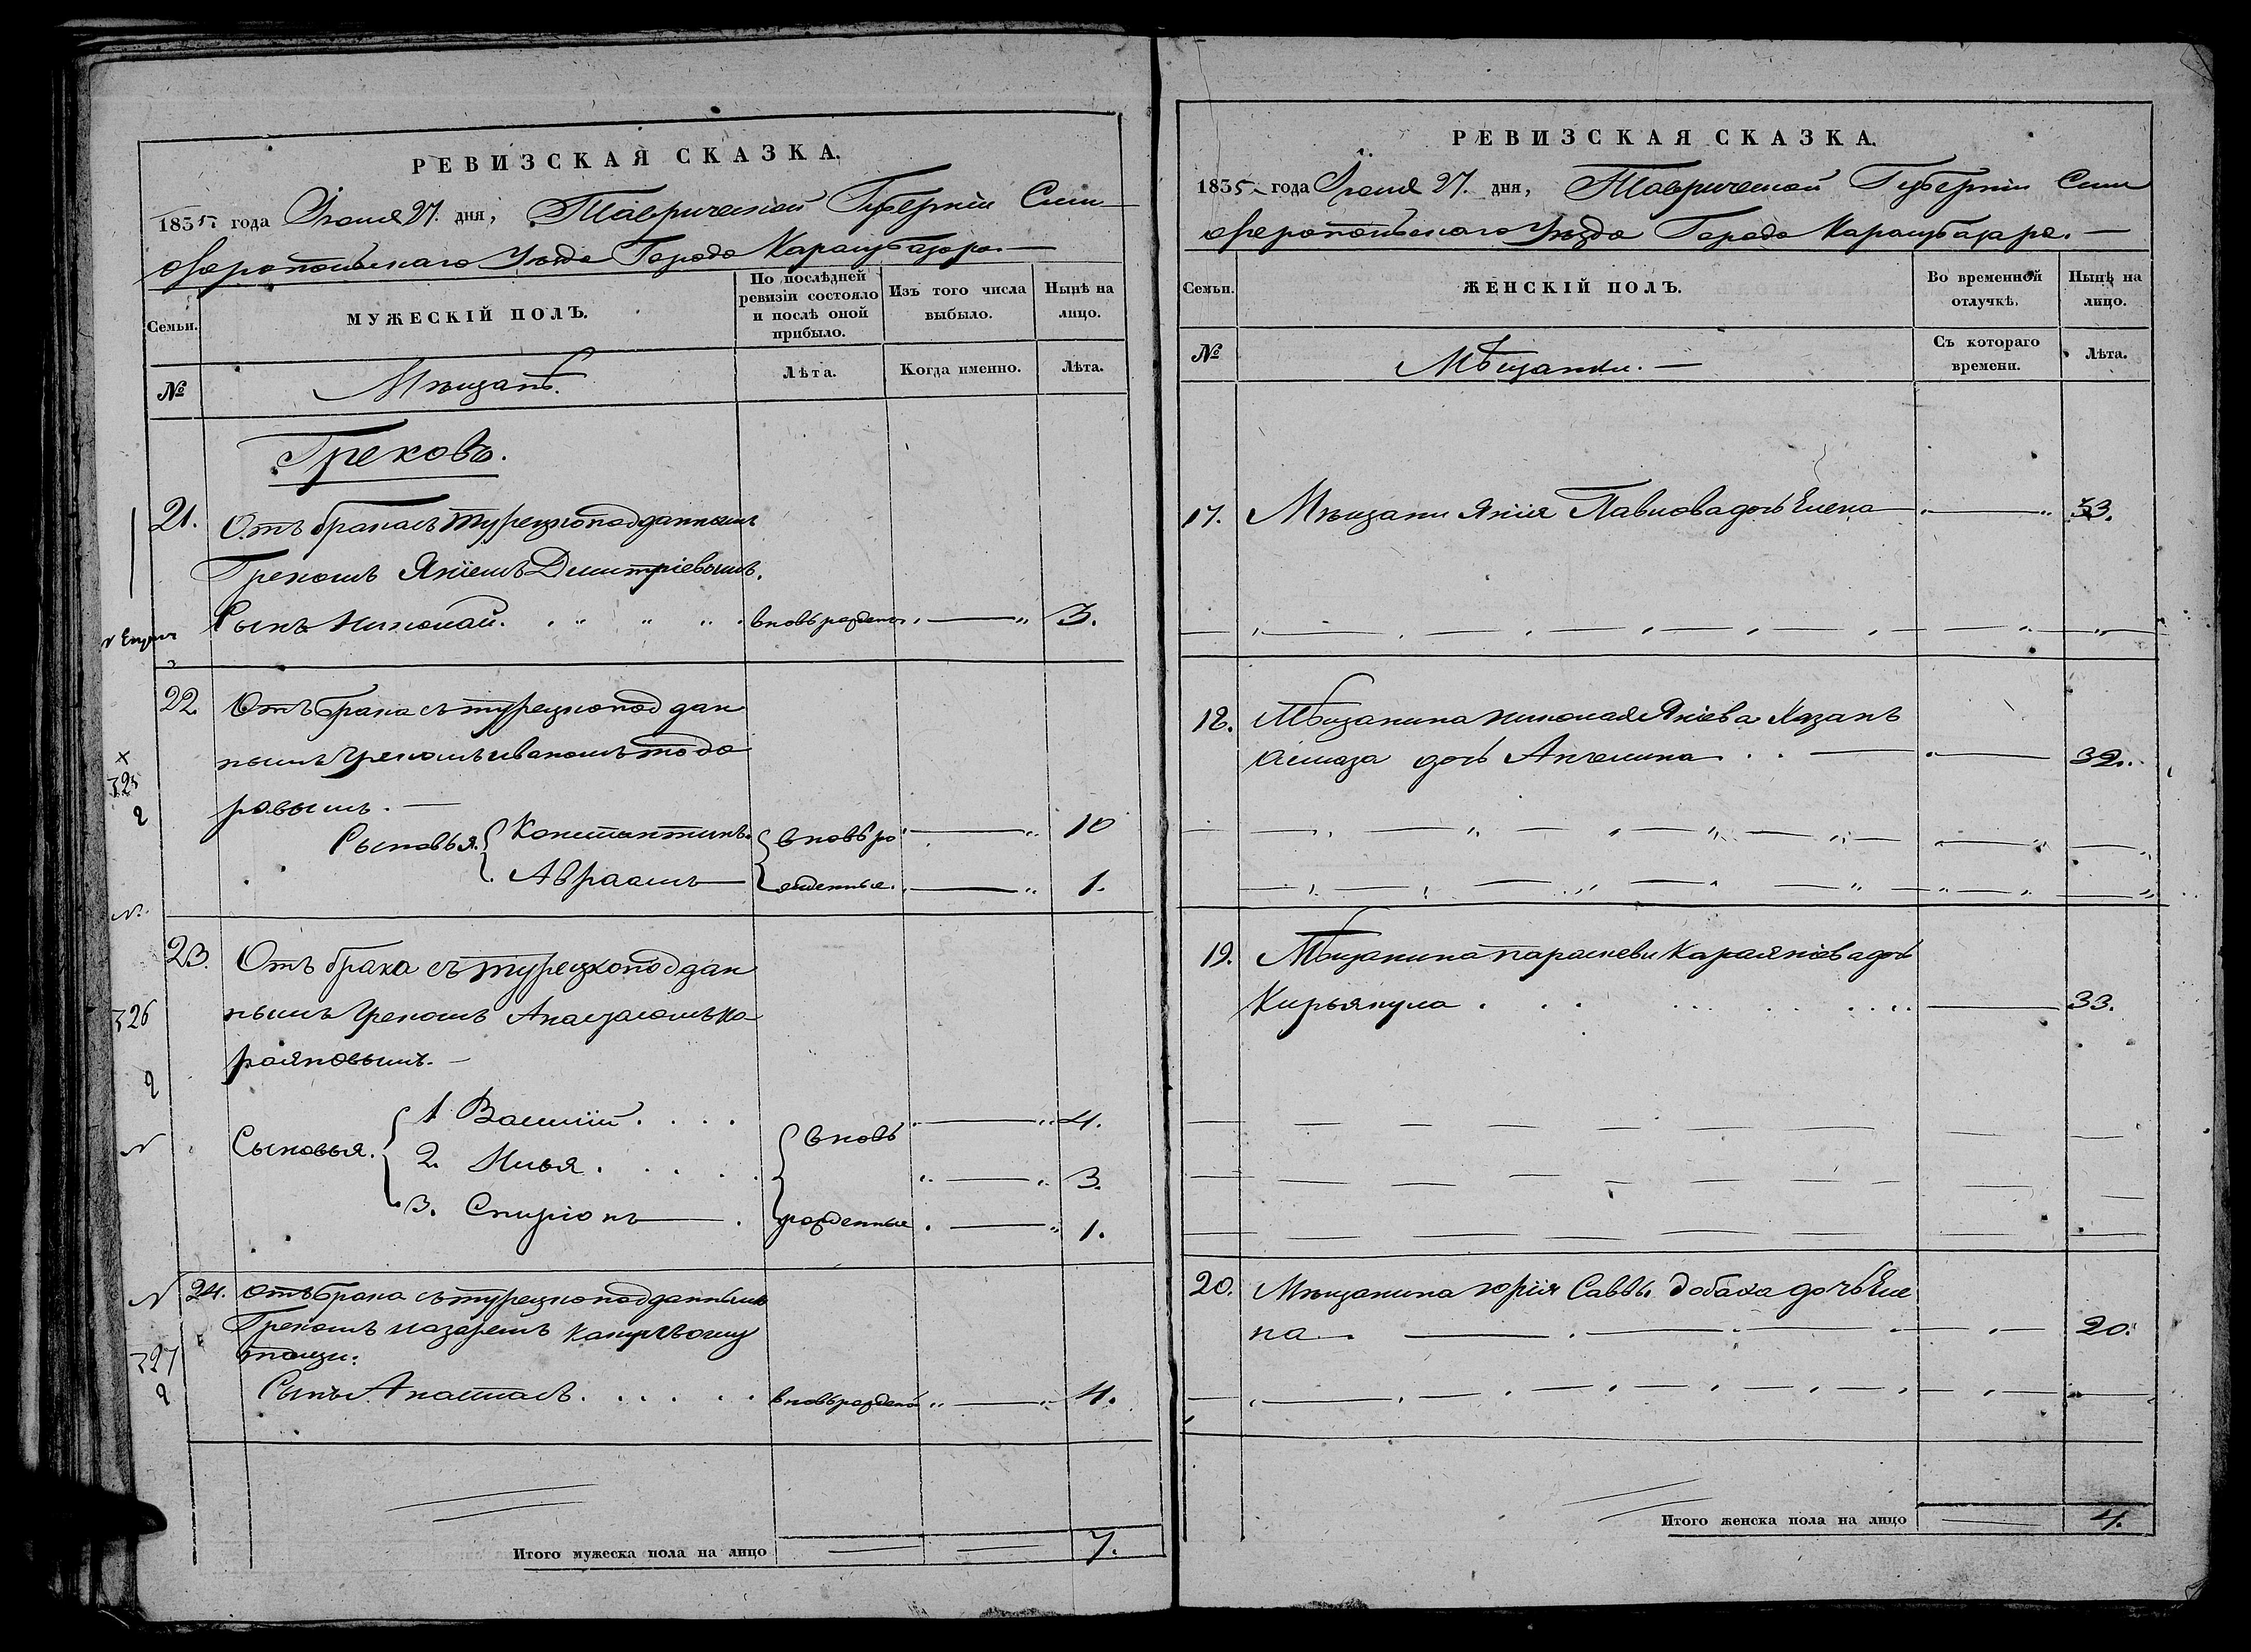 РЕВИЗСКАЯ СКАЗКА.
1835 года Іюня 27. дня, Таврической Губерніи Сим-
феропольскаго Уѣзда Города Карасубазара. —
Семьи.
МУЖЕСКІЙ ПОЛЪ.
По послѣдней ревизіи состояло и послѣ оной прибыло.
Изъ того числа выбыло.
Нынѣ на лицо.
№
Мѣщанъ.
Лѣта.
Когда именно.
Лѣта.
Грековъ.
21. Отъ брака съ турецкоподданнымъ
Грекомъ Якіемъ Димитріевымъ.
Сынъ Николай. вновь рожденъ 3.
22. Отъ брака съ турецкопод дан
нымъ Грекомъ Иваномъ Тодо
ровымъ. —
325
2
Сыновья. { Константинъ. { вновь ро 10
Авраамъ — жденные. 1.
23. Отъ брака съ турецкопод дан
326
нымъ Грекомъ Анастасомъ Ка
раяновымъ. —
2
Сыновья. { 1 Василій { вновь 4.
2. Илья 3.
3. Спиріонъ рожденные 1.
24. Отъ брака съ турецкоподданнымъ
Грекомъ Назаремъ
327
2
Сынъ Анастасъ вновь рожденъ 4.
Итого мужеска пола на лицо 7.
РЕВИЗСКАЯ СКАЗКА.
1835 года Іюня 27. дня, Таврической Губерніи Сим
феропольскаго Уѣзда Города Карасубазара. —
Семьи.
ЖЕНСКІЙ ПОЛЪ.
Во временной отлучкѣ.
Нынѣ на лицо.
№
Мѣщанки. —
Съ котораго времени.
Лѣта.
17. Мѣщани Якія Павлова дочь Елена 33.
18. Мѣщанина Николая Якіева Казанъ
дочь Ангелина 32.
19. Мѣщанина Параскеви Караянова дочь
Кирьякула 33.
20. Мѣщанина Юрія Саввы Добаха дочь Еле
на 20.
Итого женска пола на лицо 4.